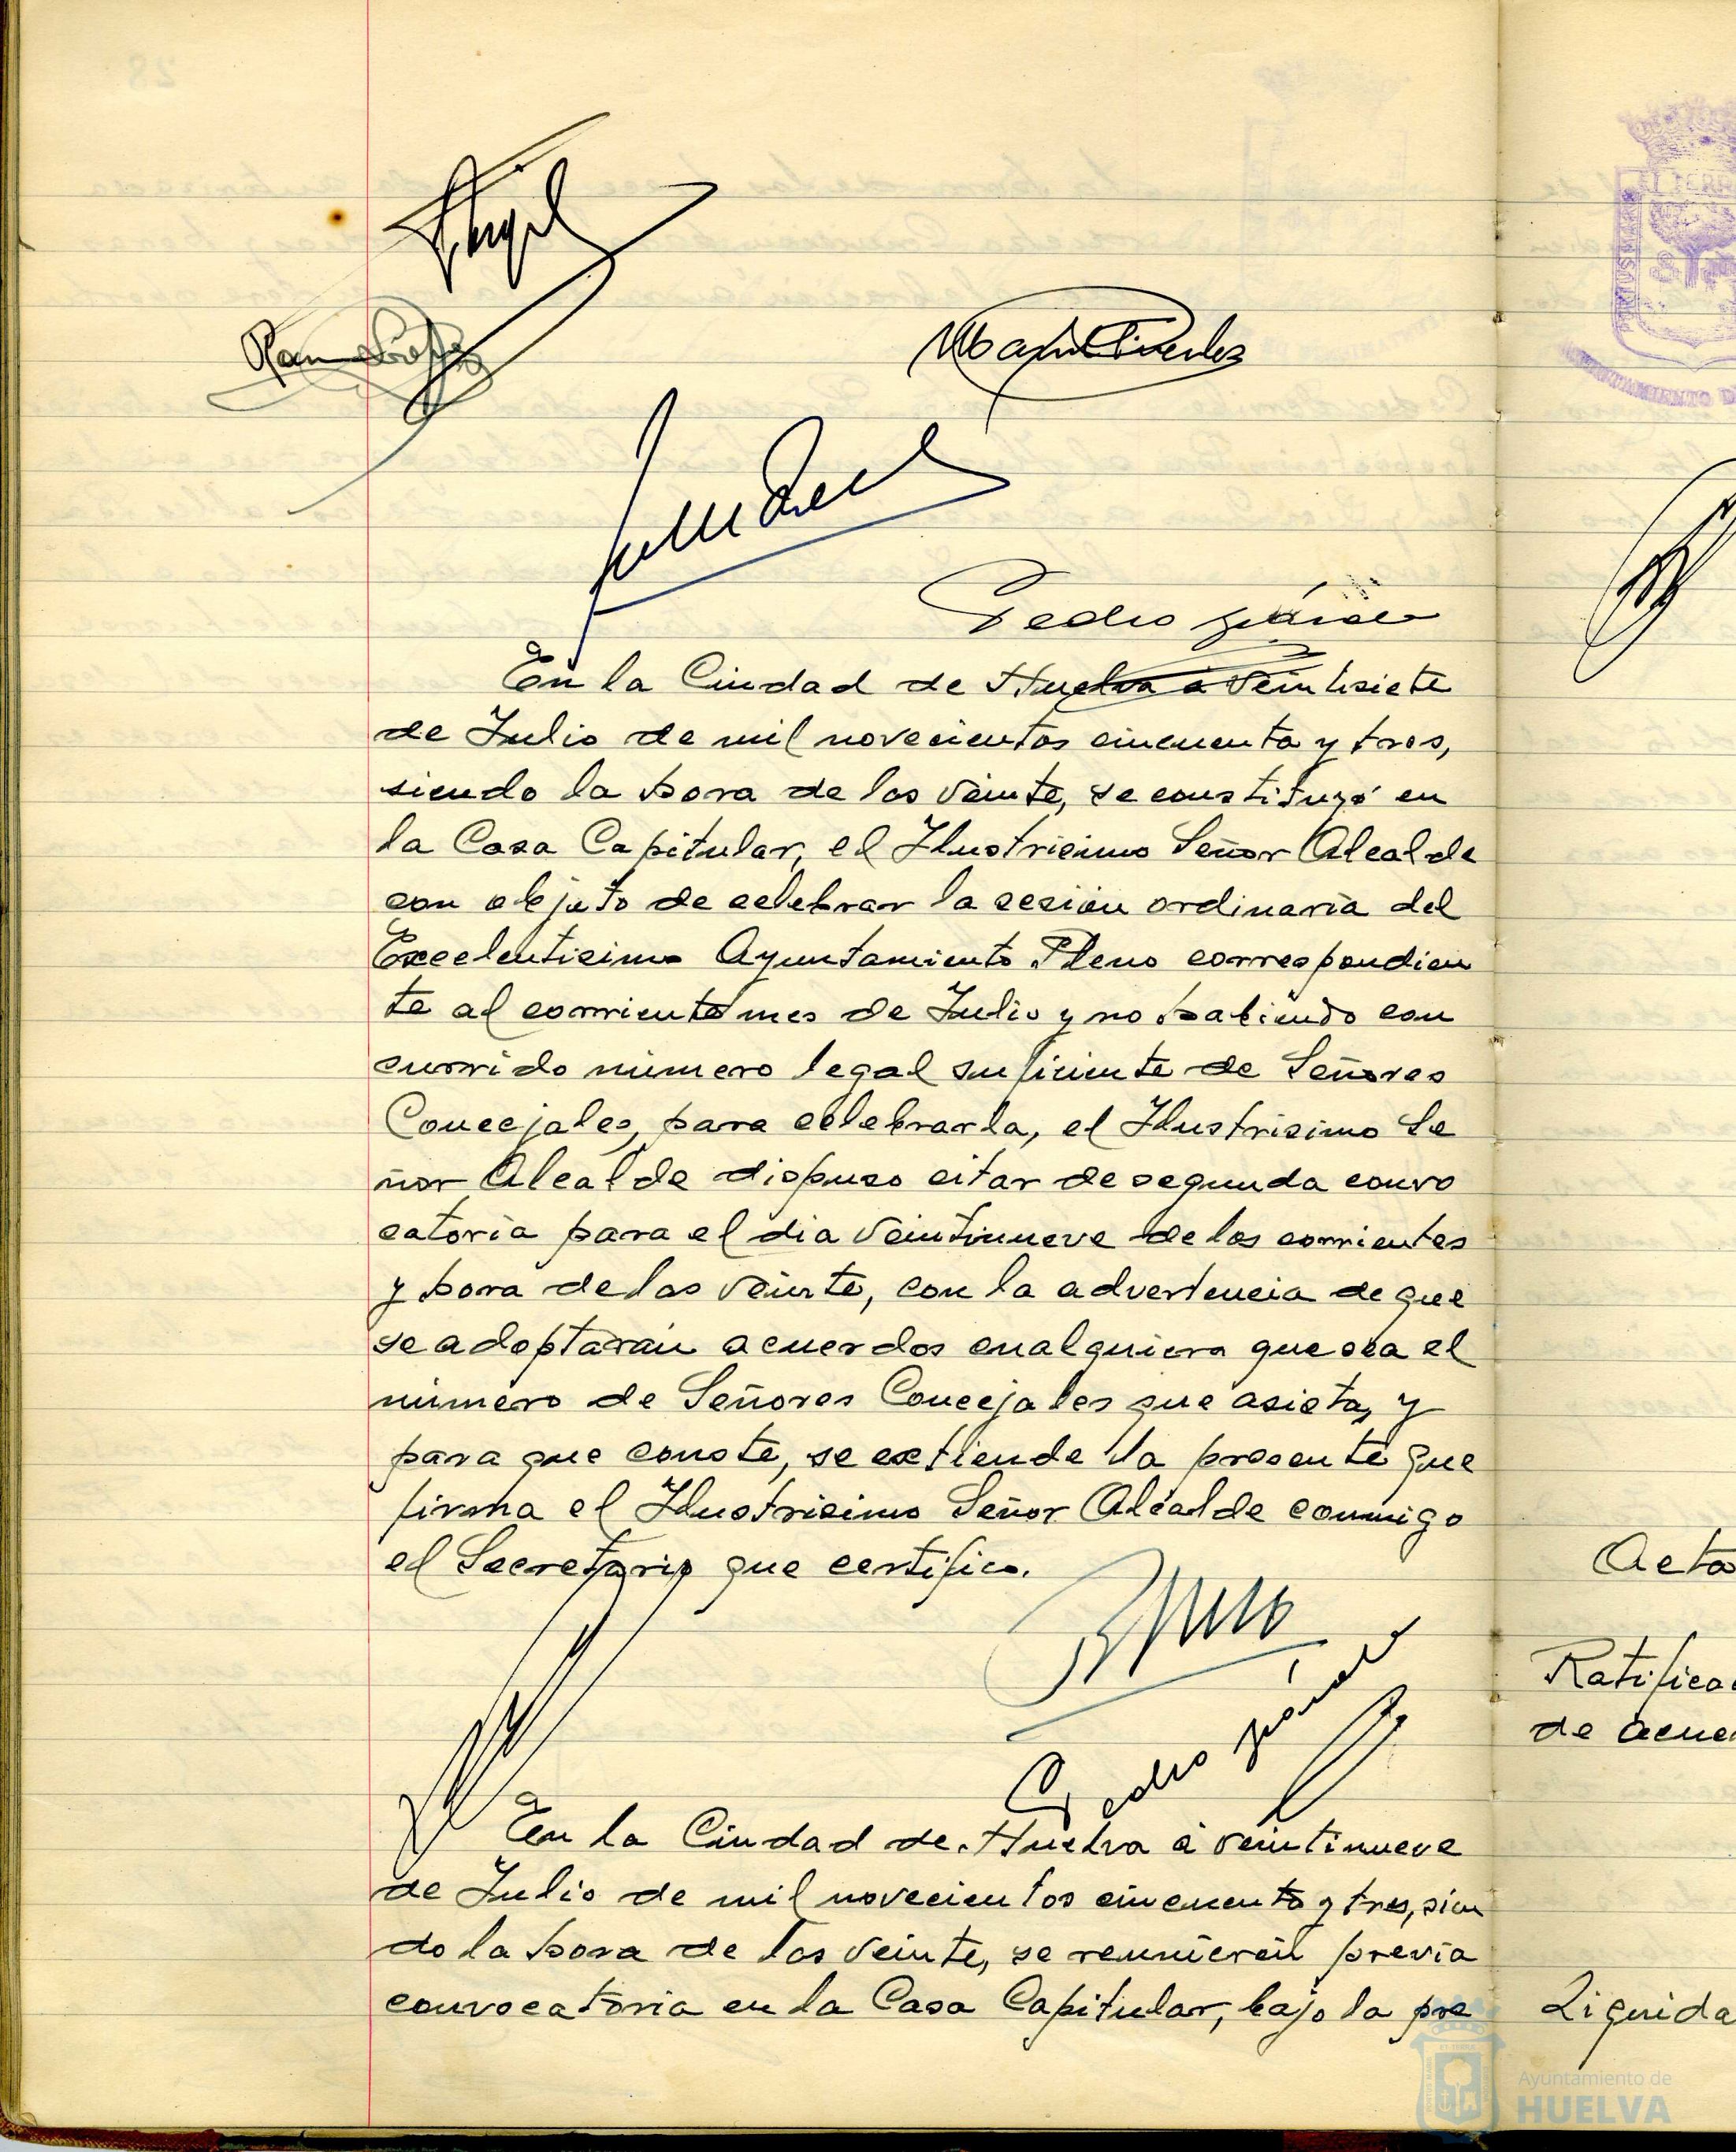 En la Ciudad de Huelva a veintisiete
de Julio de mil novecientos cincuenta y tres,
siendo la hora de las veinte, se constituyó en
la Casa Capitular, el Ilustrisimo Señor Alcalde
con objeto de celebrar la sesión ordinaria del
Excelentisimo Ayuntamiento Pleno correspondien
te al corriente mes de Julio y no habiendo con
currido número legal suficiente de Señores
Concejales, para celebrarla, el Ilustrisimo Se
ñor Alcalde dispuso citar de segunda convo
catoria para el dia veintinueve de los corrientes
y hora de las veinte, con la advertencia de que
se adoptarán acuerdos cualquiera que sea el
número de Señores Concejales que asista, y
para que conste, se extiende la presente que
firma el Ilustrisimo Señor Alcalde conmigo
el Secretario que certifico.
En la Ciudad de Huelva a veintinueve
de Julio de mil novecientos cincuenta y tres, sien
do la hora de las veinte, se reunieron previa
convocatoria en la Casa Capitular, bajo la pre
Acta
Ratifica
de acue
Liquida
Ayuntamiento de
HUELVA